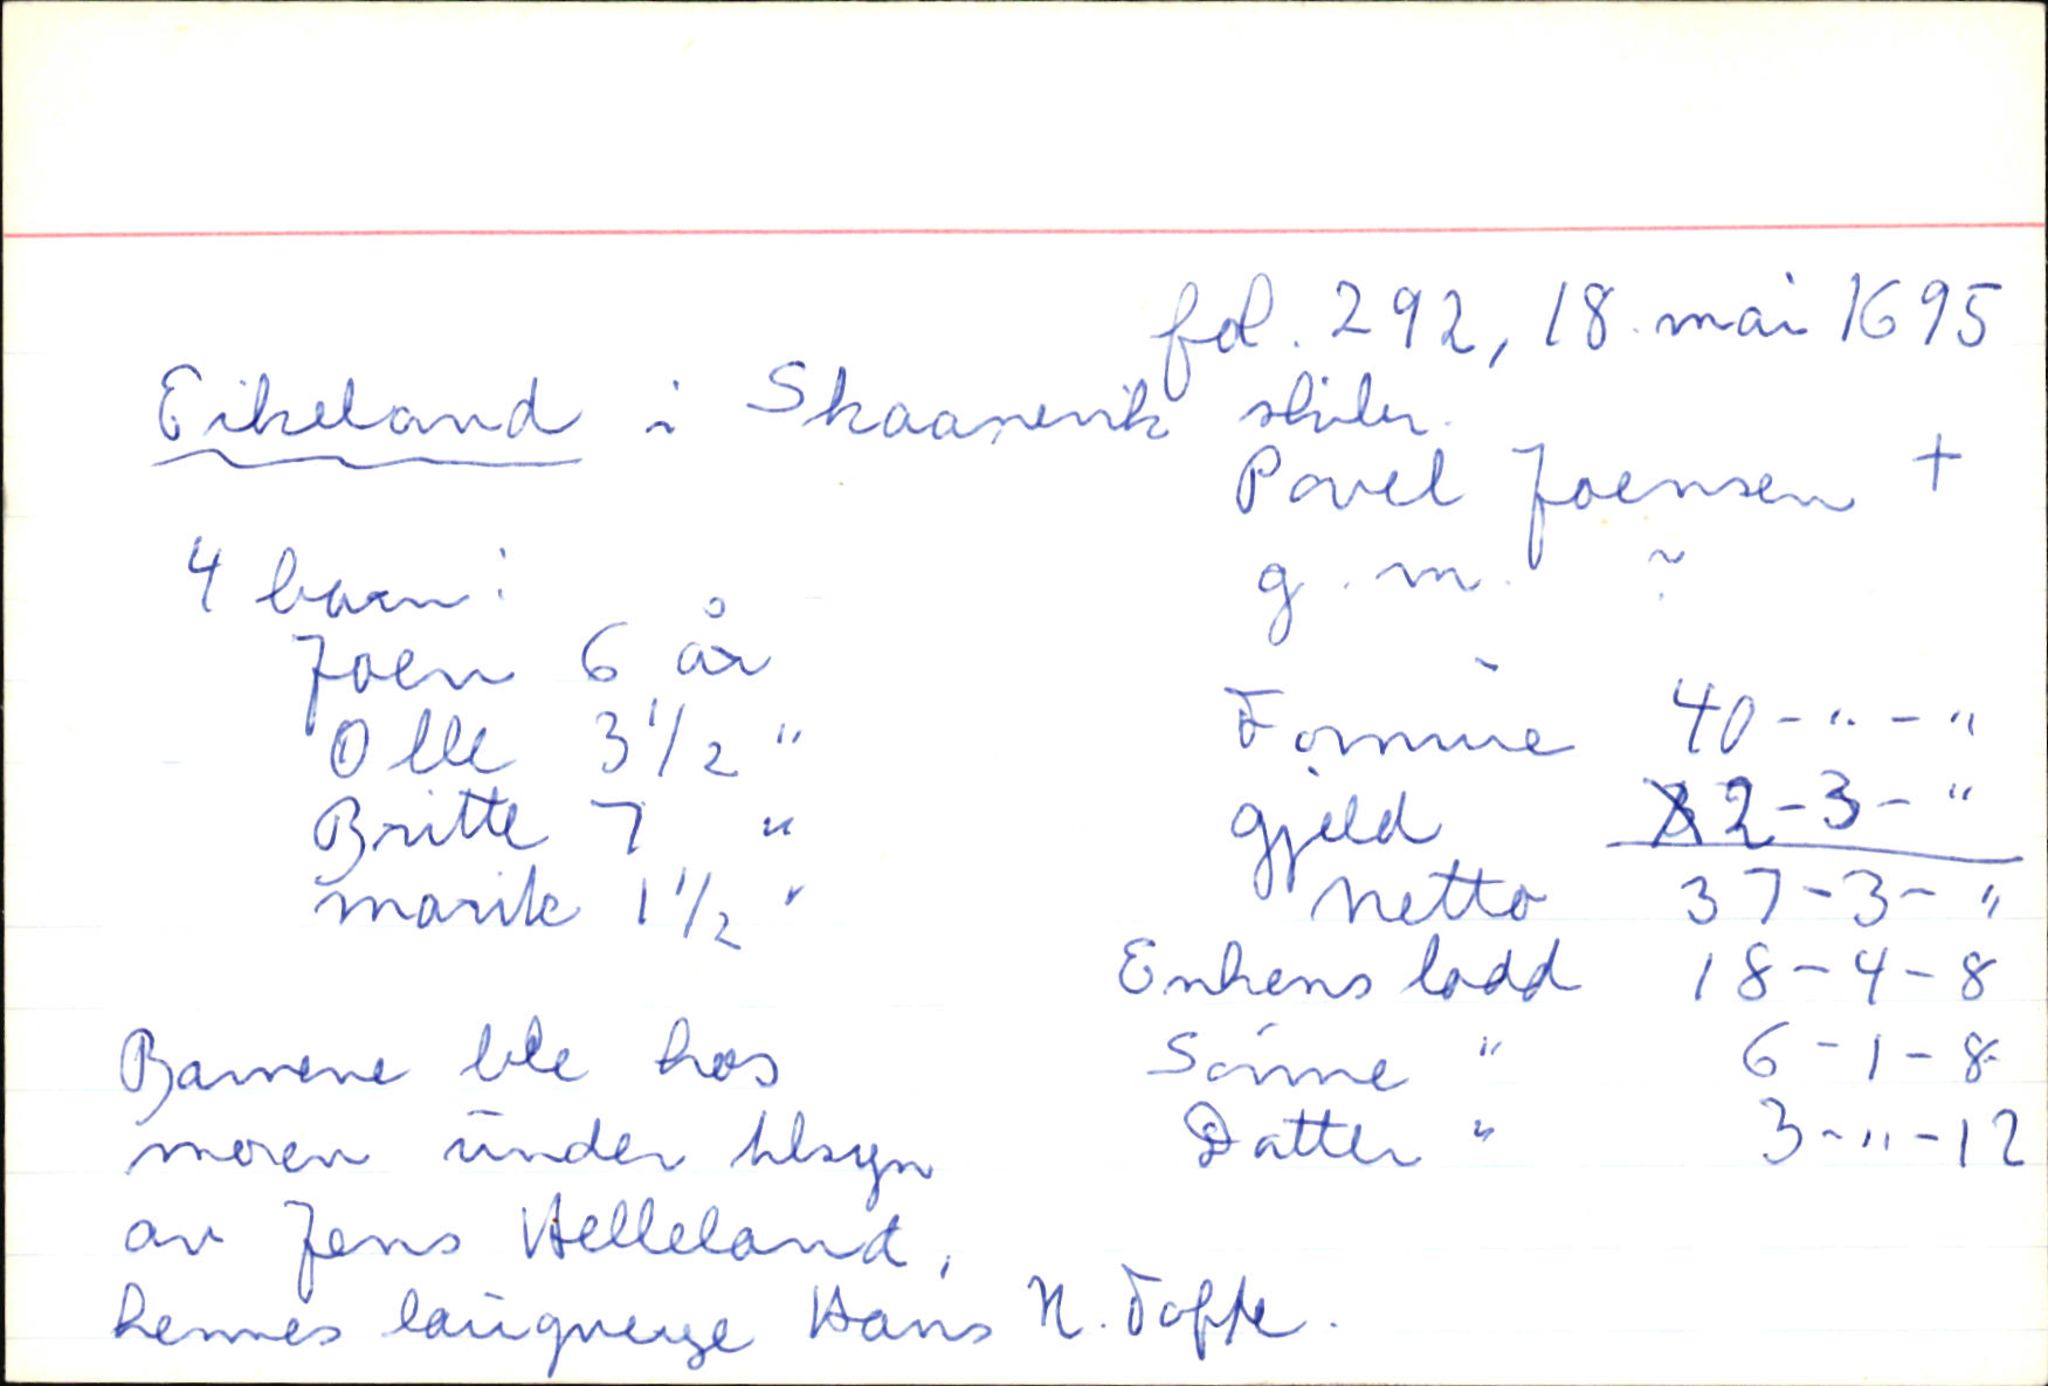 fol. 292, 18. mai 1695
Eikeland i Skaanevik skibr.
Povel Joensen +
g. m. ~
4 barn:
Joen 6 år
Olle 3 1/2 "
Britte 7 "
Marite 1 1/2 "
Formue 40-"-"
Gjeld 2-3-"
Netto 37-3-"
Enkens lodd 18-4-8
Sønne " 6-1-8
Datter " 3-"-12
Barnene ble hos
moren under tilsyn
av Jens Helleland,
hennes laugverge Hans N. Tofte.